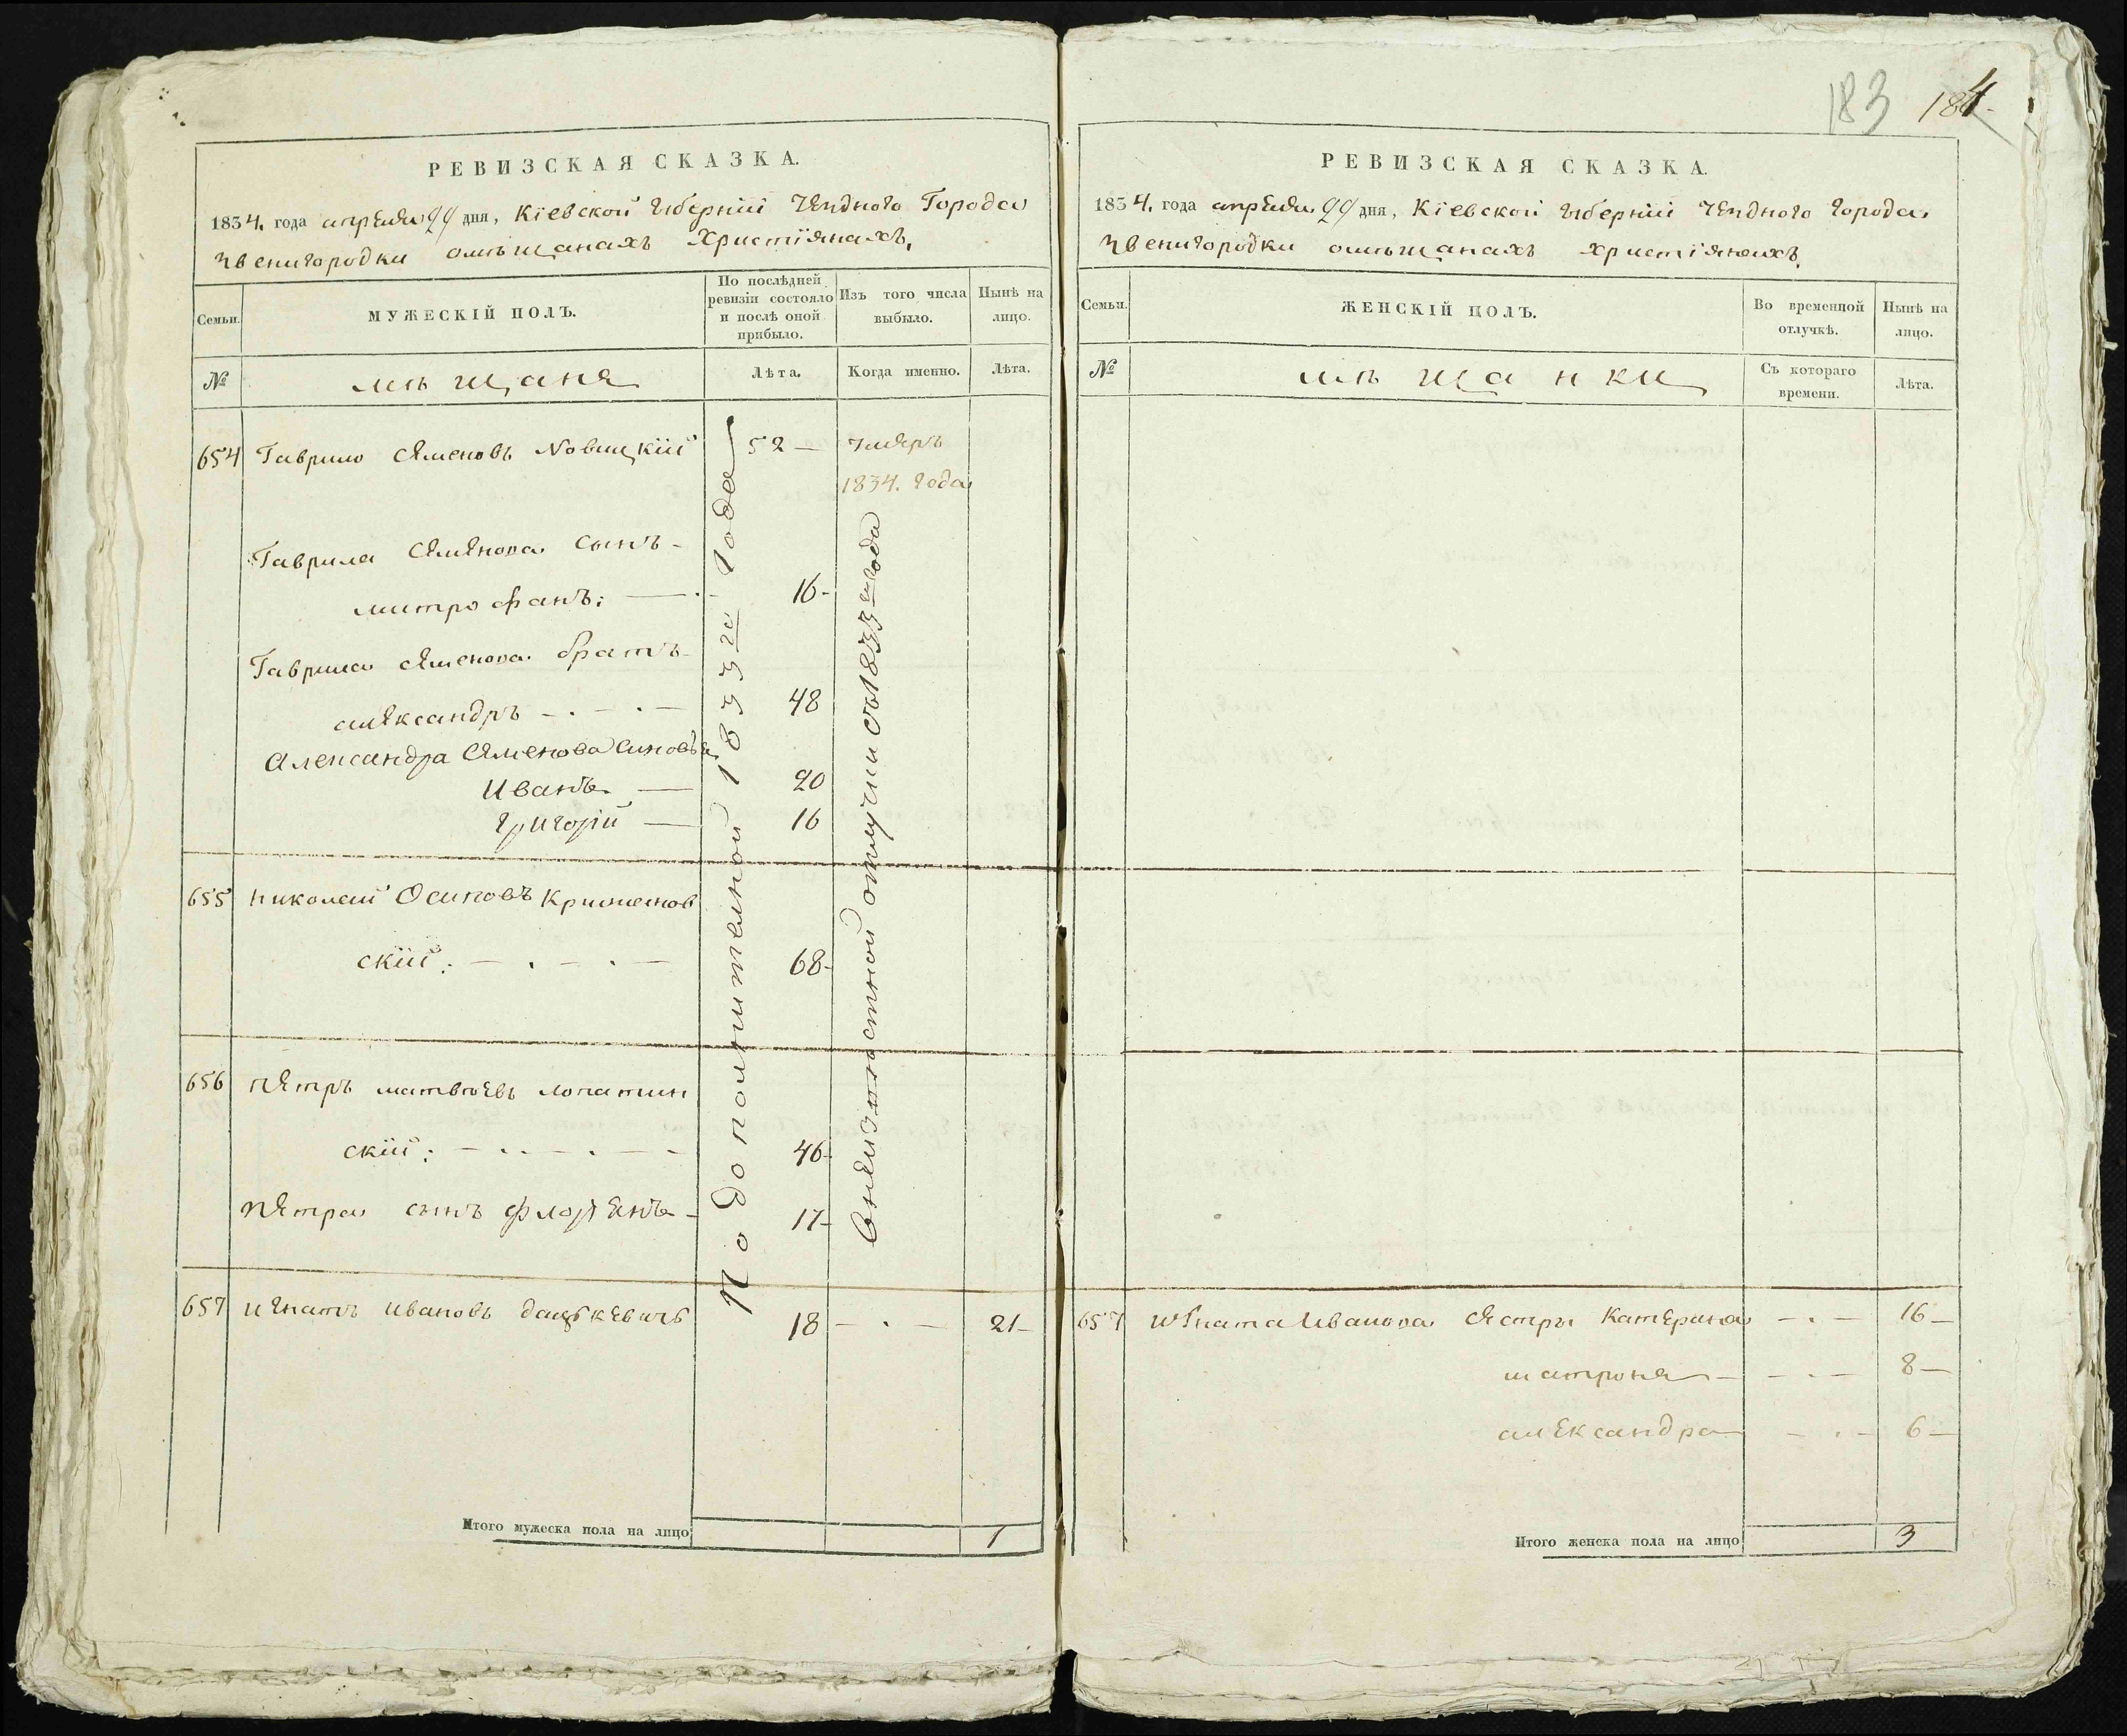 183 184
РЕВИЗСКАЯ СКАЗКА.
1834. года апреля 29 дня, Кіевской Губерніи Уездного Города
Звенигородки омѣщанахъ Христіянахъ.
Семьи.
МУЖЕСКІЙ ПОЛЪ.
По послѣдней ревизіи состояло и послѣ оной прибыло.
Изъ того числа выбыло.
Нынѣ на лицо.
№
мѣщане
Лѣта.
Когда именно.
Лѣта.
654 Гаврило Семеновъ Новицкій 52 — Умеръ
1834. года
Гаврила Семенова сынъ -
митрофанъ: — 16-
Гаврила Семенова братъ -
александръ - . - . - 48
Александра Семенова Синовья
Иванъ — 20
Григорій — 16
655 Николай Осиповъ
скій: - . - . - 68-
656 Петръ матвѣевъ лопатин
скій: - . . - . - - 46-
Петра сынъ флорЕнъ - 17-
657 игнатъ ивановъ дацкевичъ 18 - . - 21-
По дополнительной 1833 го года
отлучки съ 1833 го года
Итого мужеска пола на лицо 1
РЕВИЗСКАЯ СКАЗКА.
1834. года апреля 29 дня, Кіевской Губерніи Уездного Города
Звенигородки омѣщанахъ Христіянахъ.
Семьи.
ЖЕНСКІЙ ПОЛЪ.
Во временной отлучкѣ.
Нынѣ на лицо.
№
мѣщанки
Съ котораго времени.
Лѣта.
657 игната Иванова сестры Катерина - . - 16 -
матрона - - . - 8 -
александра - . - 6 -
Итого женска пола на лицо 3